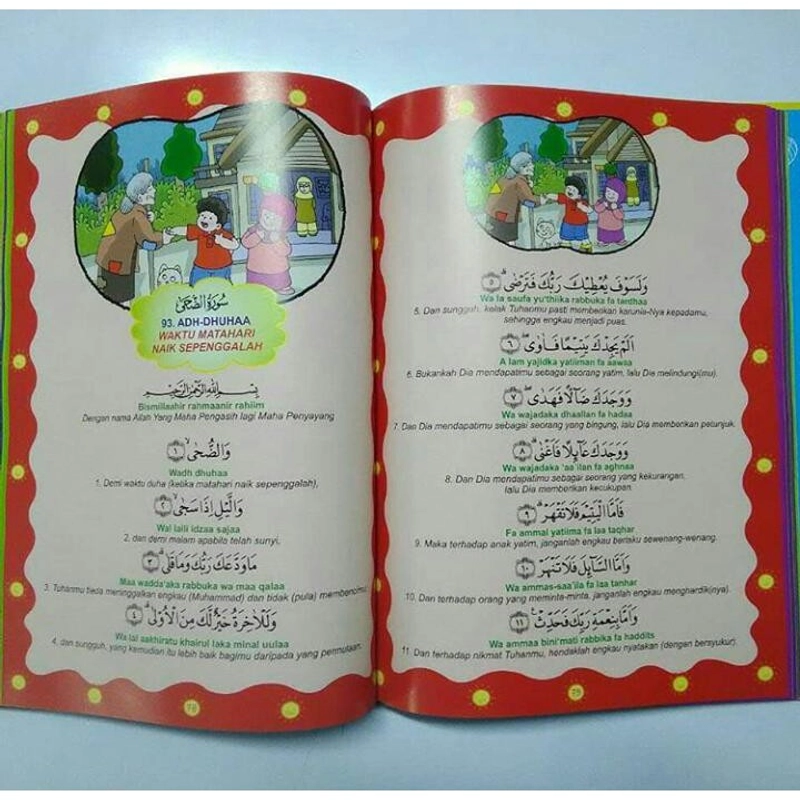 سُورَةُ الضُّحَى
93. ADH-DHUHAA
WAKTU MATAHARI
NAIK SEPENGGALAH
بِسْمِ اللَّهِ الرَّحْمَٰنِ الرَّحِيمِ
Bismillaahir rahmaanir rahiim
Dengan nama Allah Yang Maha Pengasih lagi Maha Penyayang
وَالضُّحَىٰ ۙ ١
Wadh dhuhaa
1. Demi waktu duha (ketika matahari naik sepenggalah),
وَالَّيْلِ إِذَا سَجَىٰ ۙ ٢
Wal laili idzaa sajaa
2. dan demi malam apabila telah sunyi,
مَا وَدَّعَكَ رَبُّكَ وَمَا قَلَىٰ ۗ ٣
Maa wadda'aka rabbuka wa maa qalaa
3. Tuhanmu tiada meninggalkan engkau (Muhammad) dan tidak (pula) membencimu,
وَلَلْآخِرَةُ خَيْرٌ لَّكَ مِنَ الْأُولَىٰ ۗ ٤
Wa lal aakhiratu khairul laka minal uulaa
4. dan sungguh, yang kemudian itu lebih baik bagimu daripada yang permulaan.
78
وَلَسَوْفَ يُعْطِيكَ رَبُّكَ فَتَرْضَىٰ ۗ ٥
Wa la saufa yu'thiika rabbuka fa tardhaa
5. Dan sungguh, kelak Tuhanmu pasti memberikan karunia-Nya kepadamu,
sehingga engkau menjadi puas.
أَلَمْ يَجِدْكَ يَتِيمًا فَآوَىٰ ۖ ٦
A lam yajidka yatiiman fa aawaa
6. Bukankah Dia mendapatimu sebagai seorang yatim, lalu Dia melindungi(mu).
وَوَجَدَكَ ضَالًّا فَهَدَىٰ ۖ ٧
Wa wajadaka dhaallan fa hadaa
7. Dan Dia mendapatimu sebagai seorang yang bingung, lalu Dia memberikan petunjuk.
وَوَجَدَكَ عَائِلًا فَأَغْنَىٰ ۗ ٨
Wa wajadaka 'aa'ilan fa aghnaa
8. Dan Dia mendapatimu sebagai seorang yang kekurangan,
lalu Dia memberikan kecukupan.
فَأَمَّا الْيَتِيمَ فَلَا تَقْهَرْ ۗ ٩
Fa ammal yatiima fa laa taqhar
9. Maka terhadap anak yatim, janganlah engkau berlaku sewenang-wenang.
وَأَمَّا السَّائِلَ فَلَا تَنْهَرْ ۗ ١٠
Wa ammas-saa'ila fa laa tanhar
10. Dan terhadap orang yang meminta-minta, janganlah engkau menghardik(nya).
وَأَمَّا بِنِعْمَةِ رَبِّكَ فَحَدِّثْ ۗ ١١
Wa ammaa bini'mati rabbika fa haddits
11. Dan terhadap nikmat Tuhanmu, hendaklah engkau nyatakan (dengan bersyukur).
79